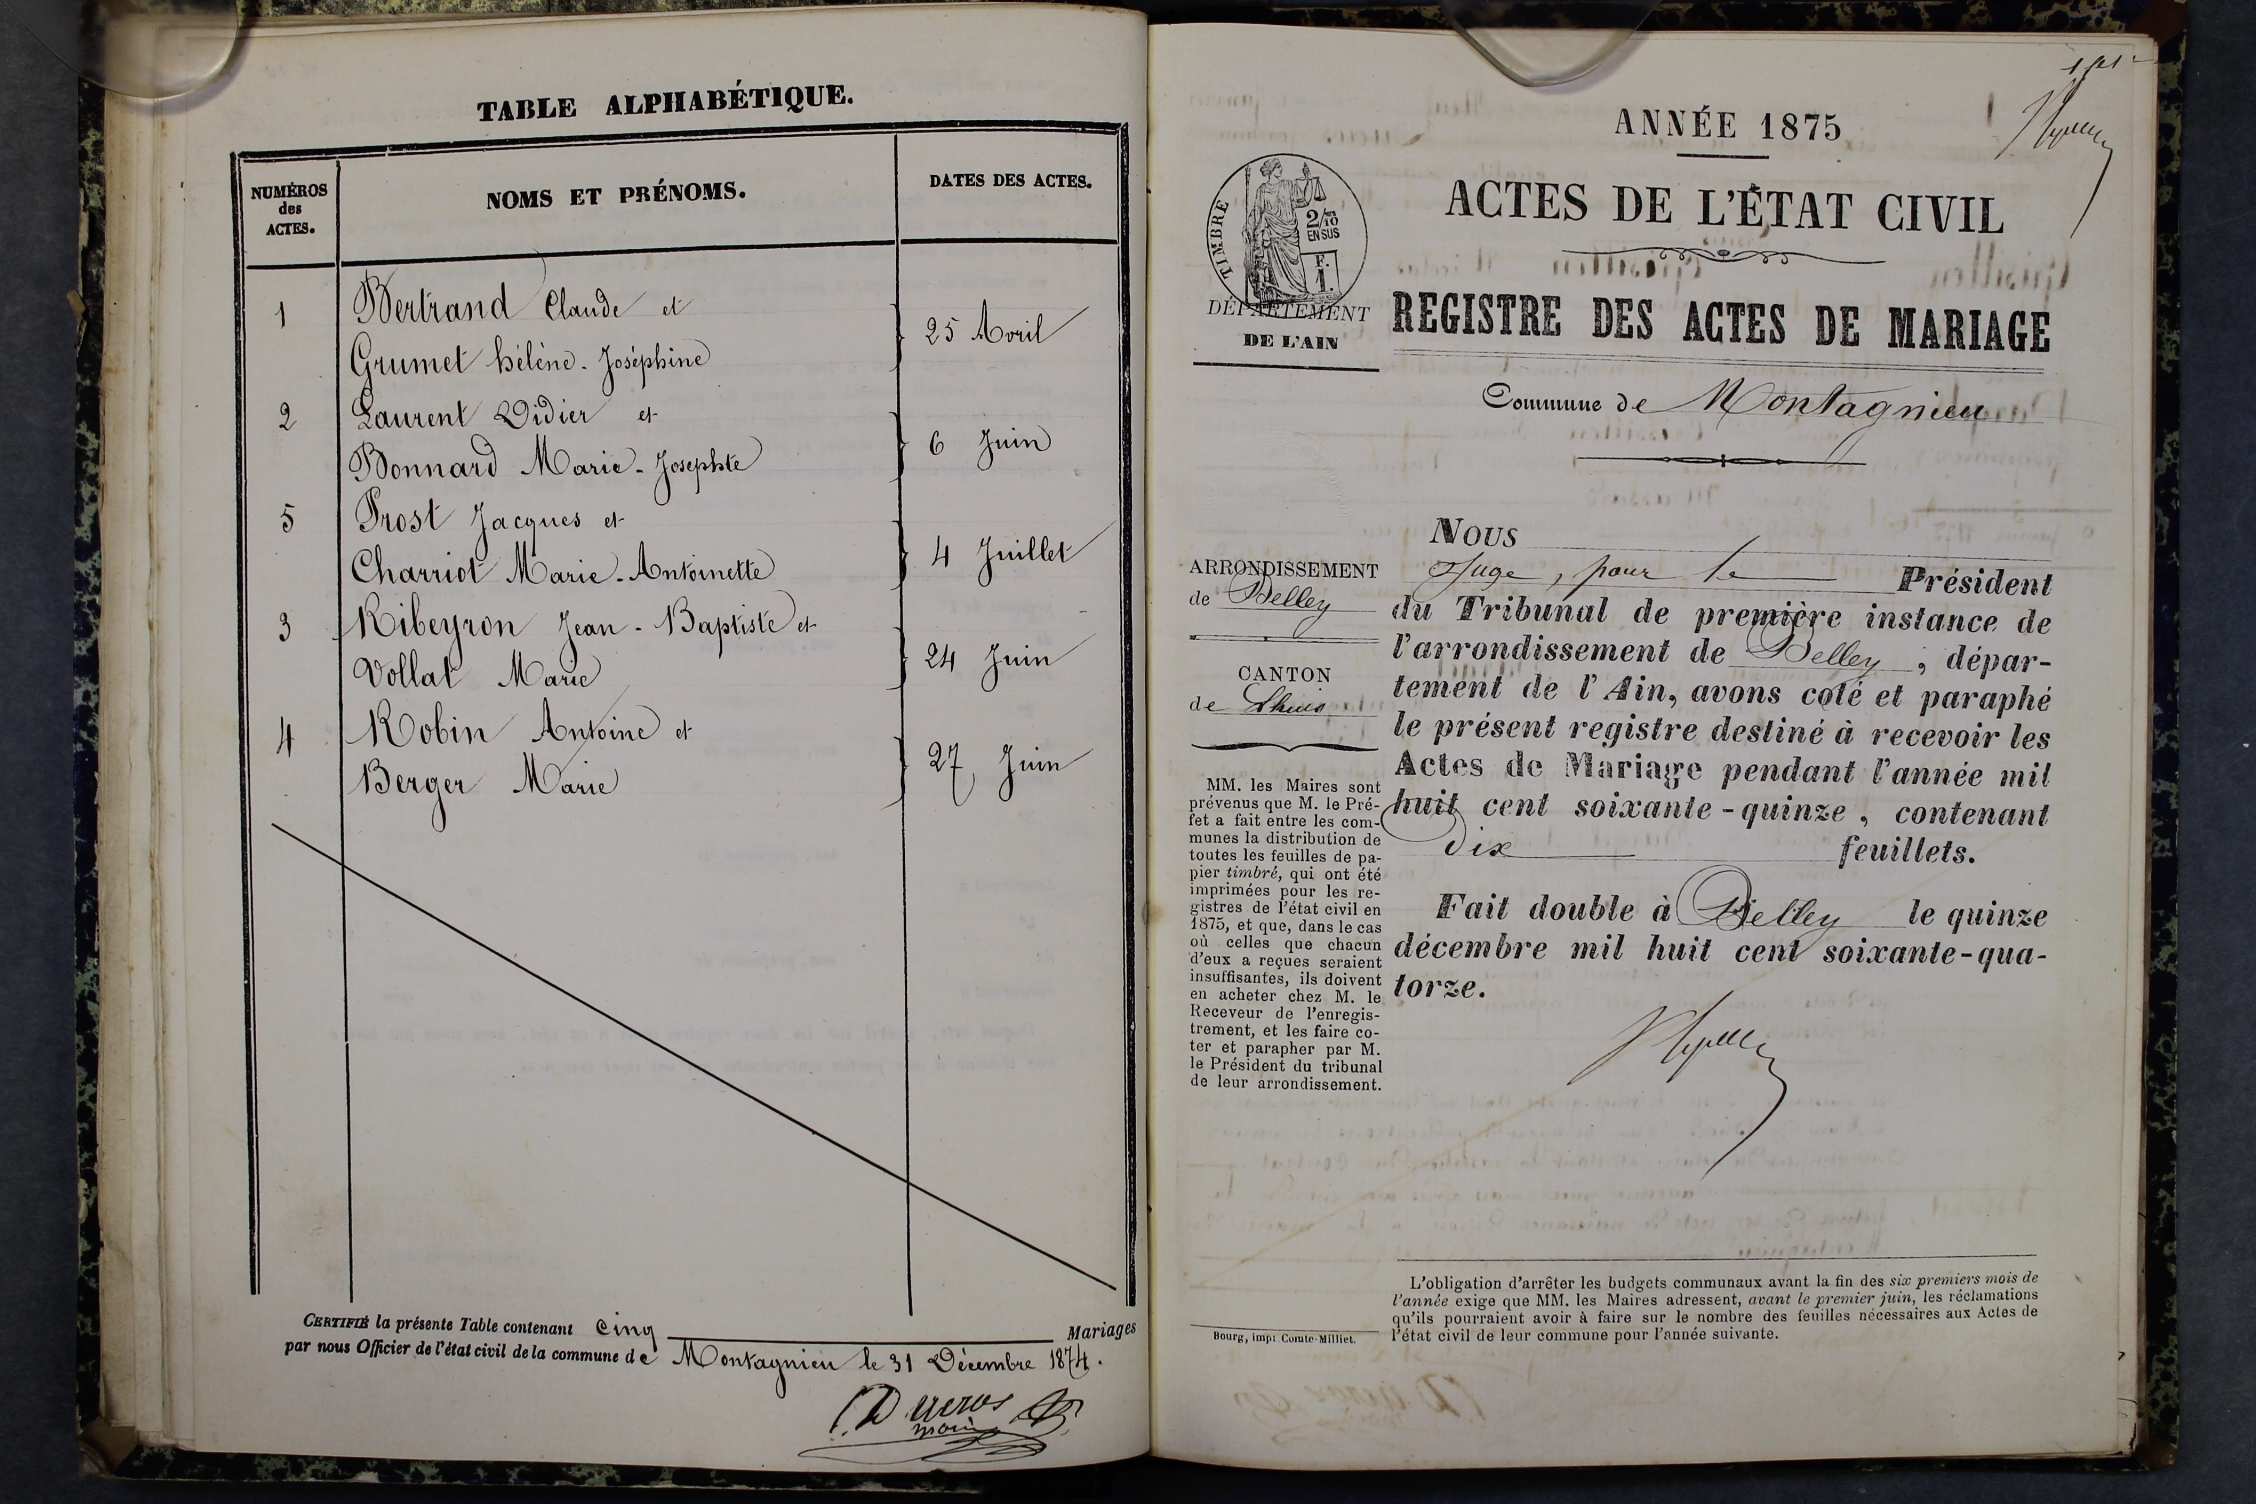 TABLE ALPHABÉTIQUE.
NUMÉROS
des
ACTES.
NOMS ET PRÉNOMS.
DATES DES ACTES.
1
Bertrand Claude et
Grumet hélène-Joséphine
25 Avril
2
Laurent Didier et
Bonnard Marie-Josephte
6 Juin
5
Prost Jacques et
Charriot Marie-Antoinette
4 Juillet
3
Ribeyron Jean-Baptiste et
Vollat Marie
24 Juin
4
Robin Antoine et
Berger Marie
27 Juin
CERTIFIÉ la présente Table contenant Cinq Mariages
par nous Officier de l'état civil de la commune de Montagnieu le 31 Décembre 1874.
maire
ANNÉE 1875
ACTES DE L'ÉTAT CIVIL
TIMBRE
2/10
EN SUS
F.
1.
DÉPARTEMENT
DE L'AIN
REGISTRE DES ACTES DE MARIAGE
Commune de Montagnieu
ARRONDISSEMENT
de Belley
CANTON
de Lhuis
MM. les Maires sont
prévenus que M. le Pré-
fet a fait entre les com-
munes la distribution de
toutes les feuilles de pa-
pier timbré, qui ont été
imprimées pour les re-
gistres de l'état civil en
1875, et que, dans le cas
où celles que chacun
d'eux a reçues seraient
insuffisantes, ils doivent
en acheter chez M. le
Receveur de l'enregis-
trement, et les faire co-
ter et parapher par M.
le Président du tribunal
de leur arrondissement.
Bourg, imp. Comte-Milliet.
NOUS
Juge, pour le Président
du Tribunal de première instance de
l'arrondissement de Belley, dépar-
tement de l'Ain, avons coté et paraphé
le présent registre destiné à recevoir les
Actes de Mariage pendant l'année mil
huit cent soixante-quinze, contenant
Dix feuillets.
Fait double à Belley le quinze
décembre mil huit cent soixante-qua-
torze.
L'obligation d'arrêter les budgets communaux avant la fin des six premiers mois de
l'année exige que MM. les Maires adressent, avant le premier juin, les réclamations
qu'ils pourraient avoir à faire sur le nombre des feuilles nécessaires aux Actes de
l'état civil de leur commune pour l'année suivante.